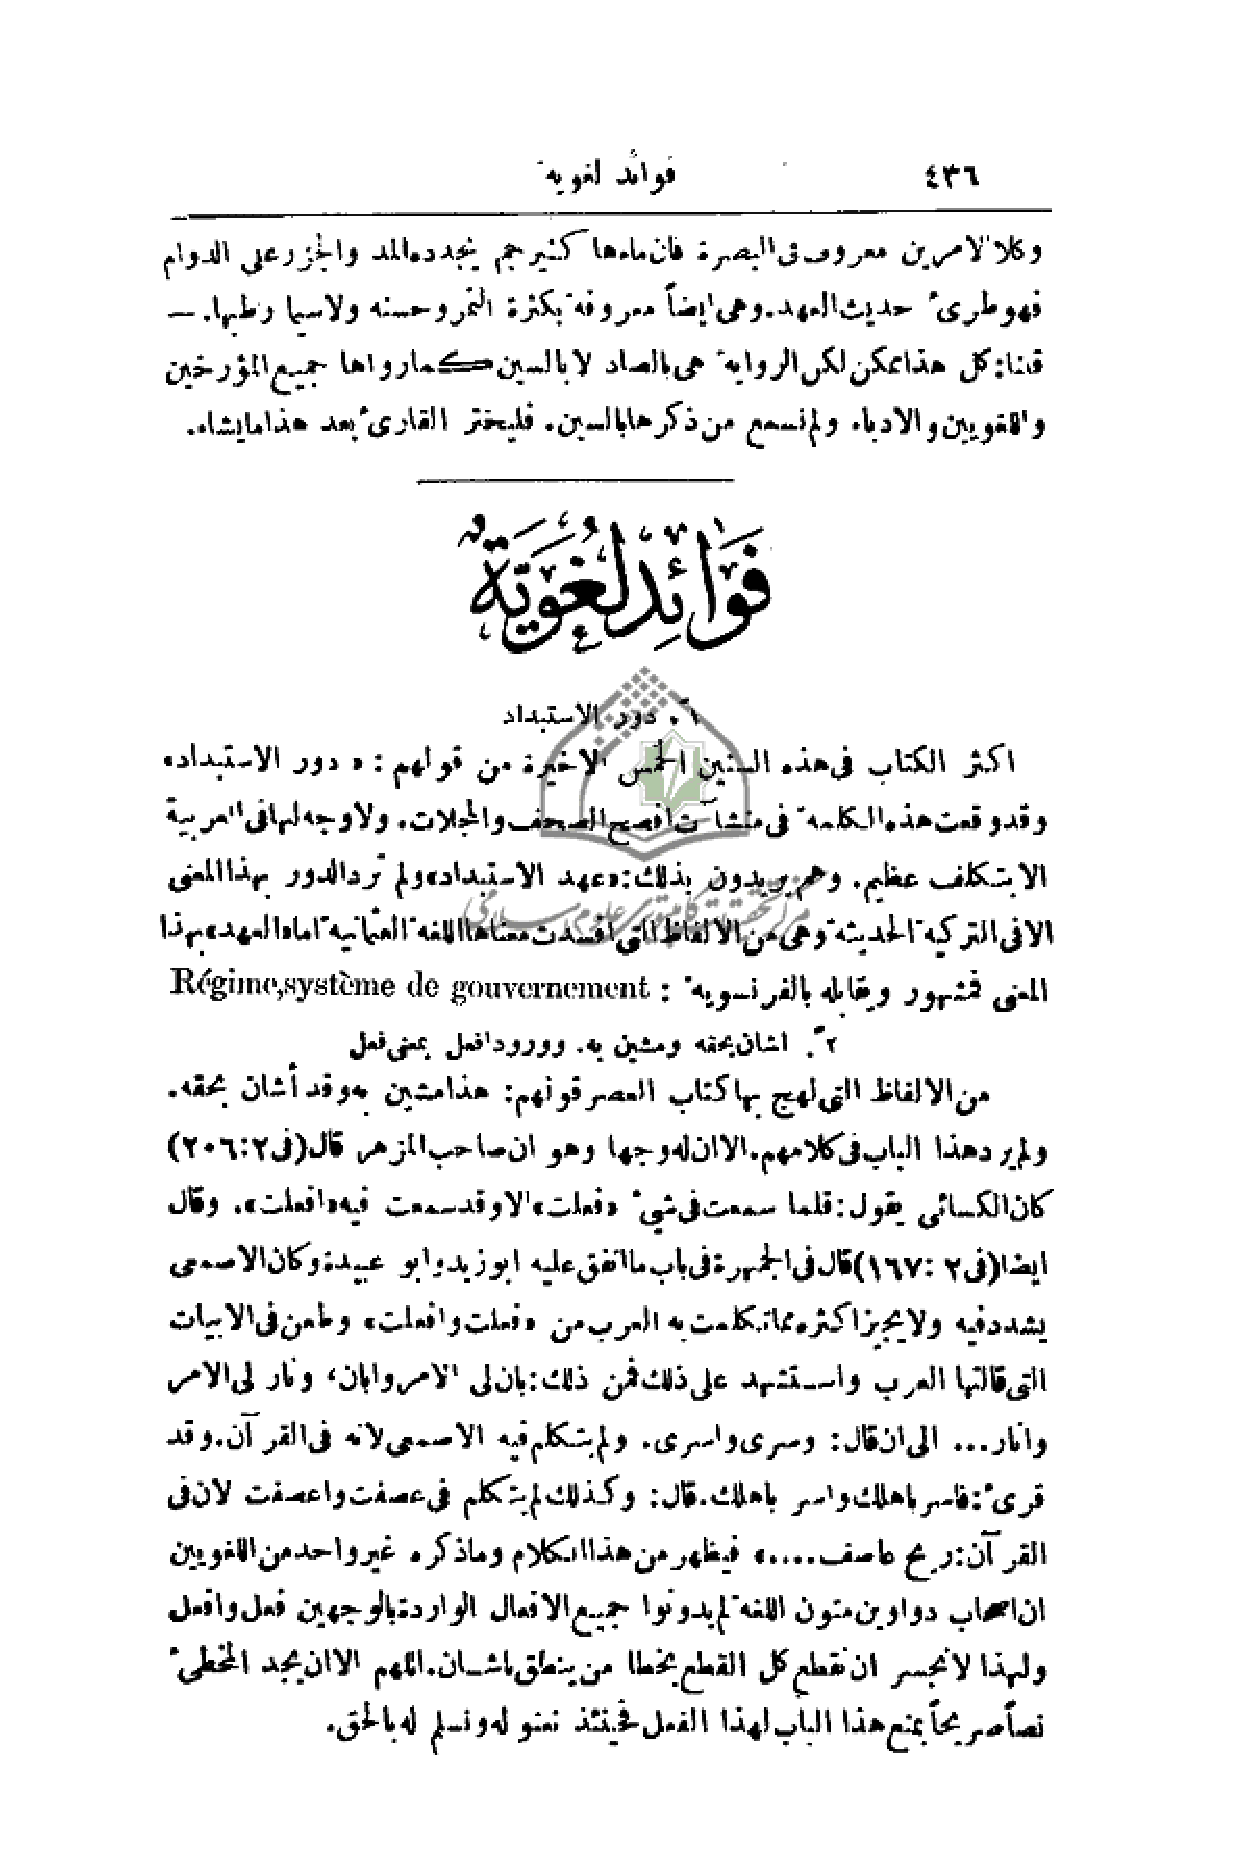 ٤٣٦ فوائد لغوية
وكلا الامرين معروف في البصرة فان ماءها كثير جم يتجدد ه المد والجزر على الدوام
فهو طريء حديث العهد. وهي ايضاً معروفة بكثرة التمر وحسنه ولا سيما رطبها. —
قلنا: كل هذا ممكن لكن الرواية هي بالصاد لا بالسين كما رواها جميع المؤرخين
واللغويين والادباء ولم نسمع من ذكرها بالسين. فليختر القارىء بعد هذا ما يشاء.
فَوَائِدُ لُغَوِيَّةٌ
١ً. دور الاستبداد
اكثر الكتاب في هذه السنين الخمس الاخيرة من قولهم: «دور الاستبداد»
وقد وقعت هذه الكلمة في منشآت افصح الصحف والمجلات. ولا وجه لها في العربية
الا بتكلف عظيم. وهم يريدون بذلك: «عهد الاستبداد» ولم ترد الدور بهذا المعنى
الا في التركية الحديثة وهي من الالفاظ التي افسدت معناها اللغة العثمانية اما «العهد» بهذا
المعنى فمشهور ويقابله بالفرنسوية: Régime, système de gouvernement
٢ً. اشان بحقه ومشين به. وورود افعل بمعنى فعل
من الالفاظ التي لهج بها كتاب العصر قولهم: هذا مشين به وقد أشان بحقه.
ولم يرد هذا الباب في كلامهم. الا ان له وجها وهو ان صاحب المزهر قال (في ٢: ٢٠٦)
كان الكسائي يقول: قلما سمعت في شيء «فعلت» الا وقد سمعت فيه «افعلت». وقال
ايضا (في ٢: ١٦٧) قال في الجمهرة في باب ما اتفق عليه ابو زيد وابو عبيدة وكان الاصمعي
يشدد فيه ولا يجيز اكثره مما تكلمت به العرب من «فعلت وافعلت» وطعن في الابيات
التي قالتها العرب واستشهد على ذلك فمن ذلك: بان لي الامر وابان، ونار لي الامر
وانار... الى ان قال: وسرى واسرى. ولم يتكلم فيه الاصمعي لانه في القرآن. وقد
قرىء: فاسر باهلك واسر باهلك. قال: وكذلك لم يتكلم في عصفت واعصفت لان في
القرآن: ريح عاصف....» فيظهر من هذا الكلام وما ذكره غير واحد من اللغويين
ان اصحاب دواوين متون اللغة لم يدونوا جميع الافعال الواردة بالوجهين فعل وافعل
ولهذا لا نجسر ان نقطع كل القطع بخطا من ينطق باشان. اللهم الا ان يجد المخطىء
نصاً صريحاً يمنع هذا الباب لهذا الفعل فحينئذ نعنو له ونسلم له بالحق.